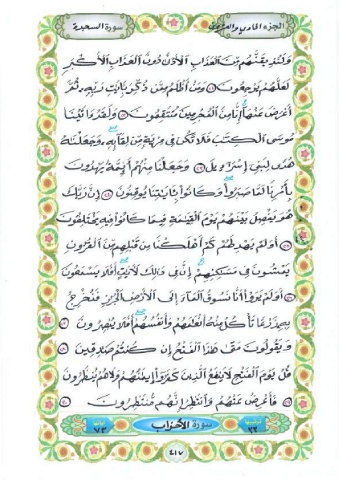 الجزء الحادي والعشرون سورة السجدة
وَلَنُذِيقَنَّهُم مِّنَ الْعَذَابِ الْأَدْنَىٰ دُونَ الْعَذَابِ الْأَكْبَرِ
لَعَلَّهُمْ يَرْجِعُونَ ٢١ وَمَنْ أَظْلَمُ مِمَّن ذُكِّرَ بِآيَاتِ رَبِّهِ ثُمَّ
أَعْرَضَ عَنْهَا إِنَّا مِنَ الْمُجْرِمِينَ مُنتَقِمُونَ ٢٢ وَلَقَدْ آتَيْنَا
مُوسَى الْكِتَابَ فَلَا تَكُن فِي مِرْيَةٍ مِّن لِّقَائِهِ وَجَعَلْنَاهُ
هُدًى لِّبَنِي إِسْرَائِيلَ ٢٣ وَجَعَلْنَا مِنْهُمْ أَئِمَّةً يَهْدُونَ
بِأَمْرِنَا لَمَّا صَبَرُوا وَكَانُوا بِآيَاتِنَا يُوقِنُونَ ٢٤ إِنَّ رَبَّكَ
هُوَ يَفْصِلُ بَيْنَهُمْ يَوْمَ الْقِيَامَةِ فِيمَا كَانُوا فِيهِ يَخْتَلِفُونَ
٢٥ أَوَلَمْ يَهْدِ لَهُمْ كَمْ أَهْلَكْنَا مِن قَبْلِهِم مِّنَ الْقُرُونِ
يَمْشُونَ فِي مَسَاكِنِهِمْ إِنَّ فِي ذَٰلِكَ لَآيَاتٍ أَفَلَا يَسْمَعُونَ
٢٦ أَوَلَمْ يَرَوْا أَنَّا نَسُوقُ الْمَاءَ إِلَى الْأَرْضِ الْجُرُزِ فَنُخْرِجُ
بِهِ زَرْعًا تَأْكُلُ مِنْهُ أَنْعَامُهُمْ وَأَنفُسُهُمْ أَفَلَا يُبْصِرُونَ ٢٧
وَيَقُولُونَ مَتَىٰ هَٰذَا الْفَتْحُ إِن كُنتُمْ صَادِقِينَ ٢٨
قُلْ يَوْمَ الْفَتْحِ لَا يَنفَعُ الَّذِينَ كَفَرُوا إِيمَانُهُمْ وَلَا هُمْ يُنظَرُونَ
٢٩ فَأَعْرِضْ عَنْهُمْ وَانتَظِرْ إِنَّهُم مُّنتَظِرُونَ ٣٠
ترتيبها ٣٣ سورة الأحزاب آياتها ٧٣
٤١٧